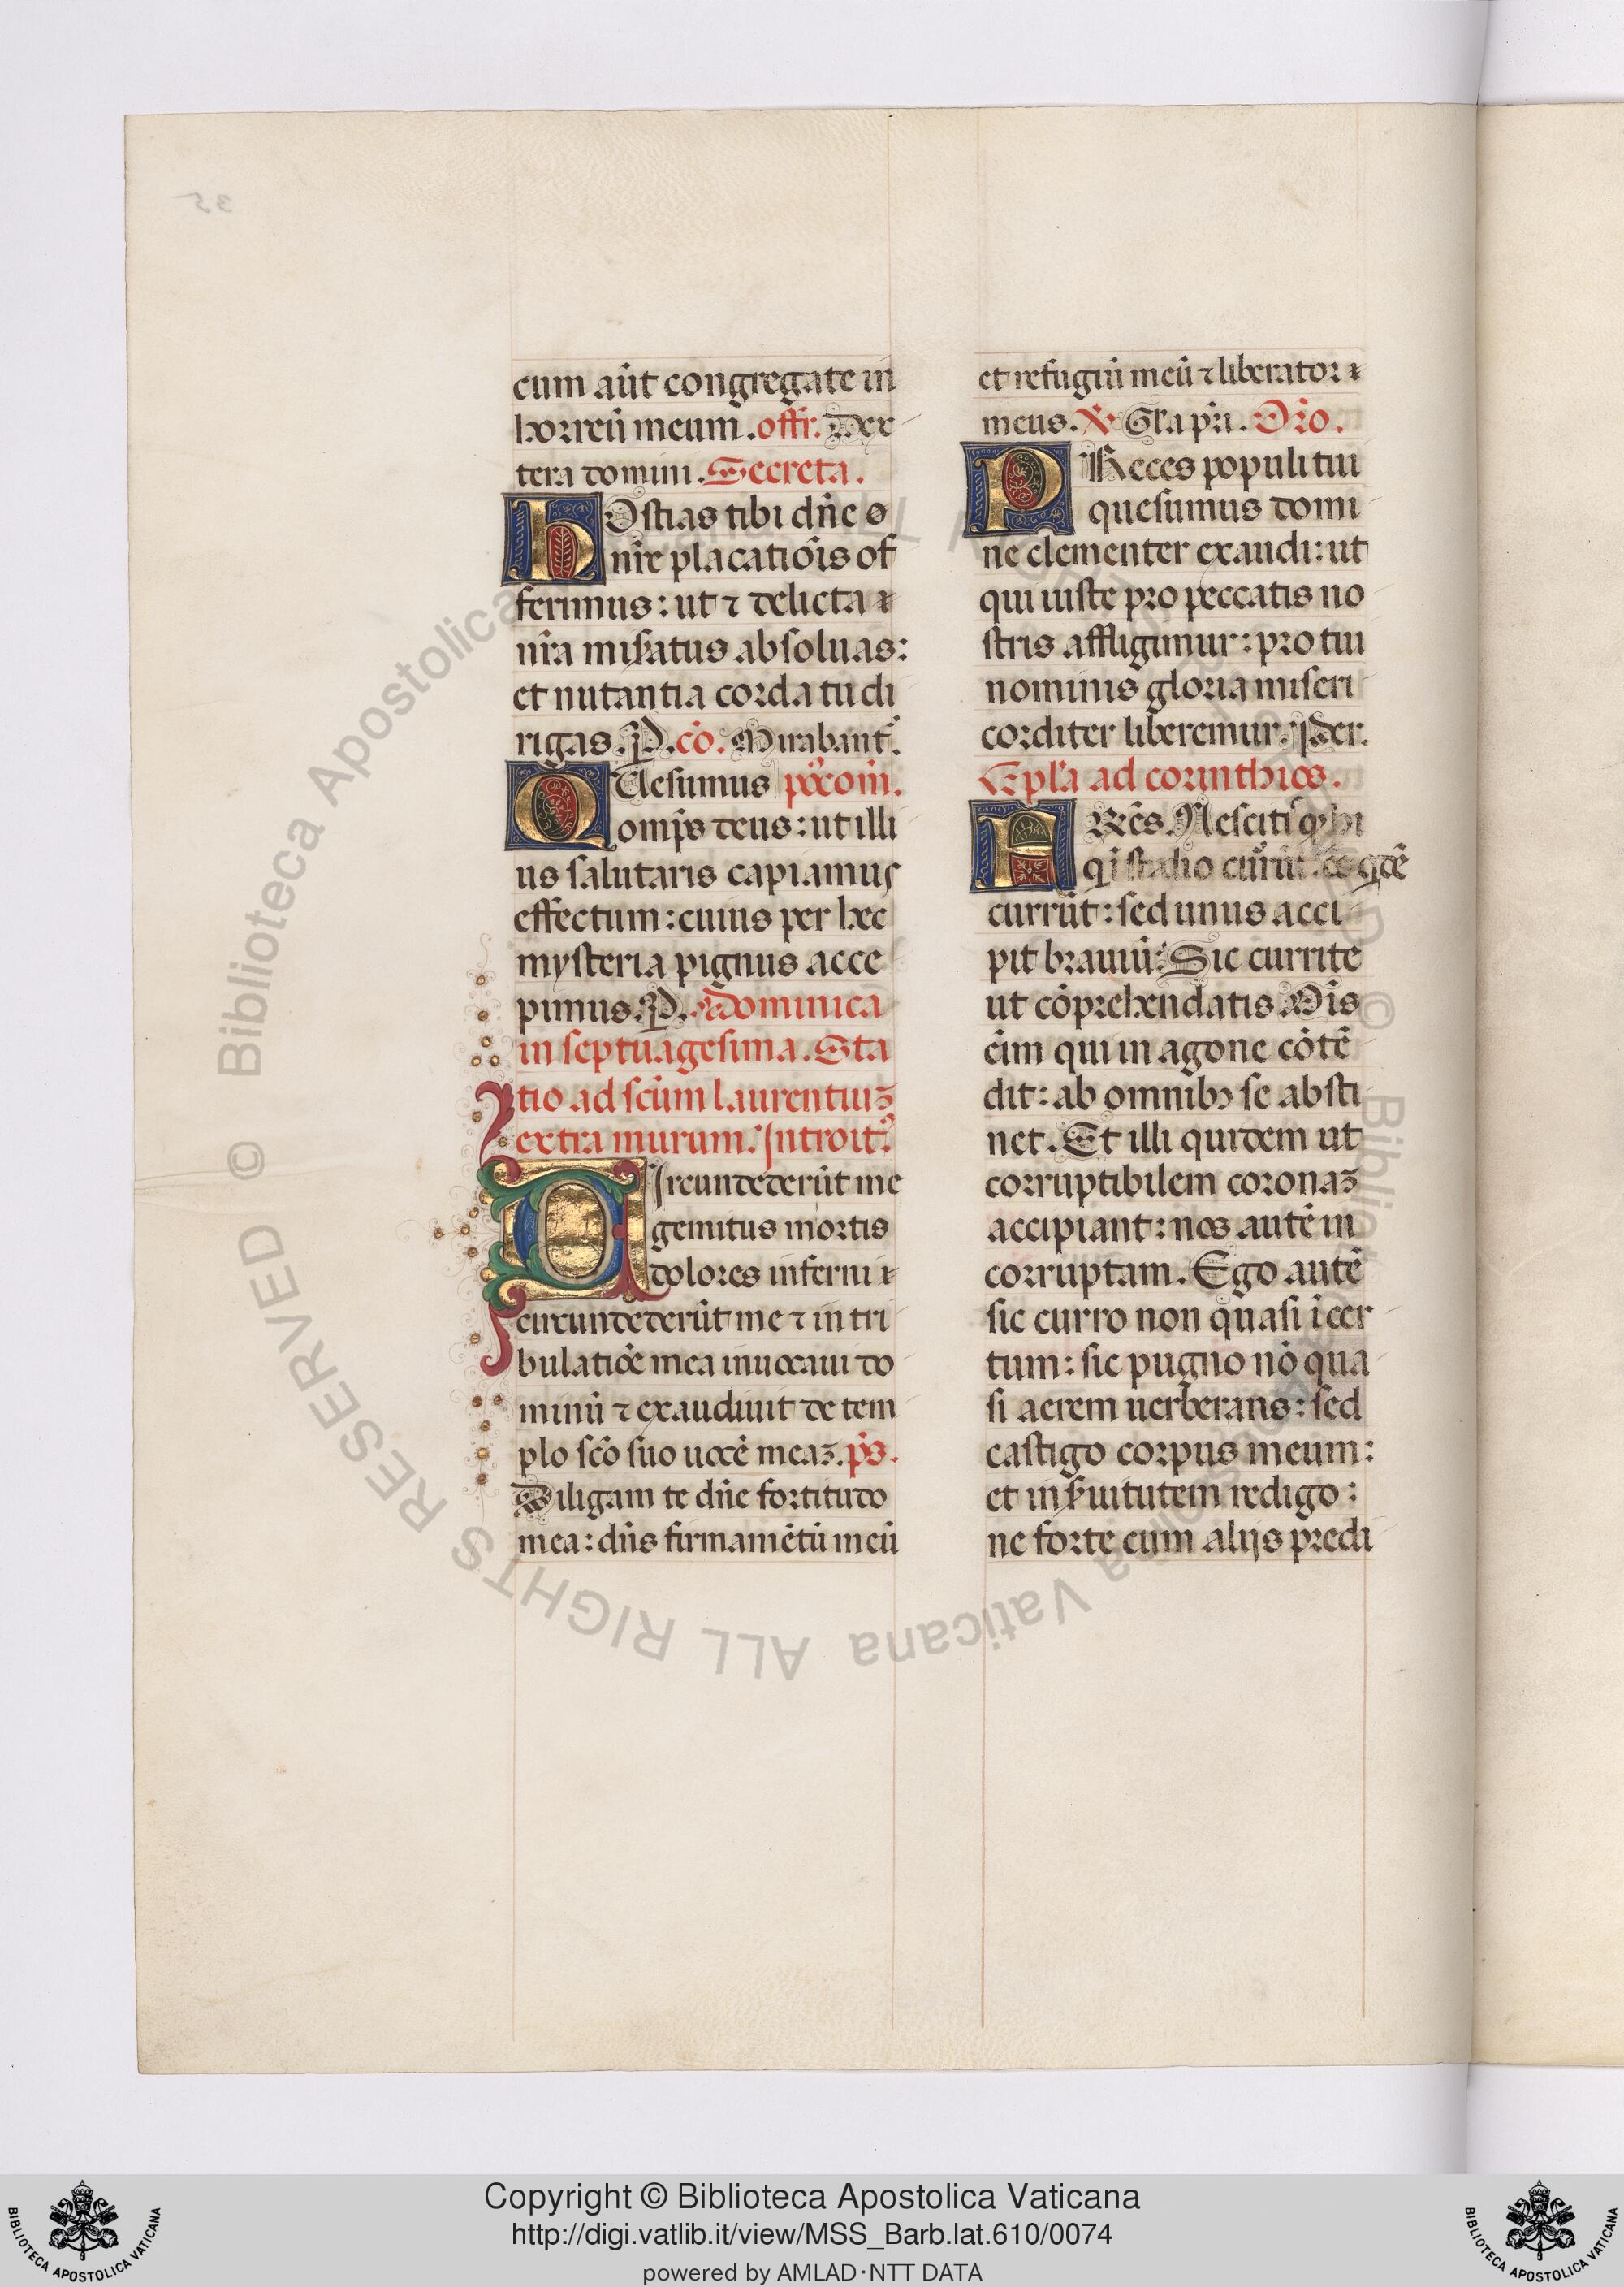 cum aūt congregate in
horreū meum. offr̄. Dex
tera domini. Secreta.
HOstias tibi dn̄e
nr̄e placatiōis of
ferimus: ut ⁊ delicta
nr̄a misatus absoluas:
et nutantia corda tu di
rigas. P. cō. Mirabant᷑.
QUesumus poc̄oīn.
omp̄s deus: ut illi
us salutaris capiamus
effectum: cuius per hec
mysteria pignus acce
pimus. P. Dominica
in septuagesima. Sta
tio ad scūm laurentiuꝫ
extra murum. Introit᷒.
CIrcundederūt me
gemitus mortis
dolores inferni
circundederūt me ⁊ in tri
bulatiōe mea inuocaui do
minū ⁊ exaudiuit de tem
plo scō suo uocē meaꝫ. p̄s.
Diligam te dn̄e fortitudo
mea: dn̄s firmamētū meū
et refugiū meū ⁊ liberator
meus. ℣ Gl̄a pr̄i. Or̄o.
PReces populi tui
quesumus domi
ne clementer exaudi: ut
qui iuste pro peccatis no
stris affligimur: pro tui
nominis gloria miseri
corditer liberemur. Per.
Epl̄a ad corinthios.
FRēs. Nescitis ꝙ hi
qī stadio currūt: oēs qdē
currūt: sed unus acci
pit brauiū: Sic currite
ut cōprehendatis. Oīs
ēim qui in agone cōtē
dit: ab omnibꝫ se absti
net. Et illi quidem ut
corruptibilem coronaꝫ
accipiant: nos autē in
corruptam. Ego autē
sic curro non quasi īcer
tum: sic pugno nō qua
si aerem uerberans: sed
castigo corpus meum:
et in suitutem redigo:
ne forte cum alijs predi
Copyright © Biblioteca Apostolica Vaticana
http://digi.vatlib.it/view/MSS_Barb.lat.610/0074
powered by AMLAD·NTT DATA
BIBLIOTECA APOSTOLICA VATICANA
BIBLIOTECA APOSTOLICA VATICANA
© Biblioteca Apostolica Vaticana ALL RIGHTS RESERVED